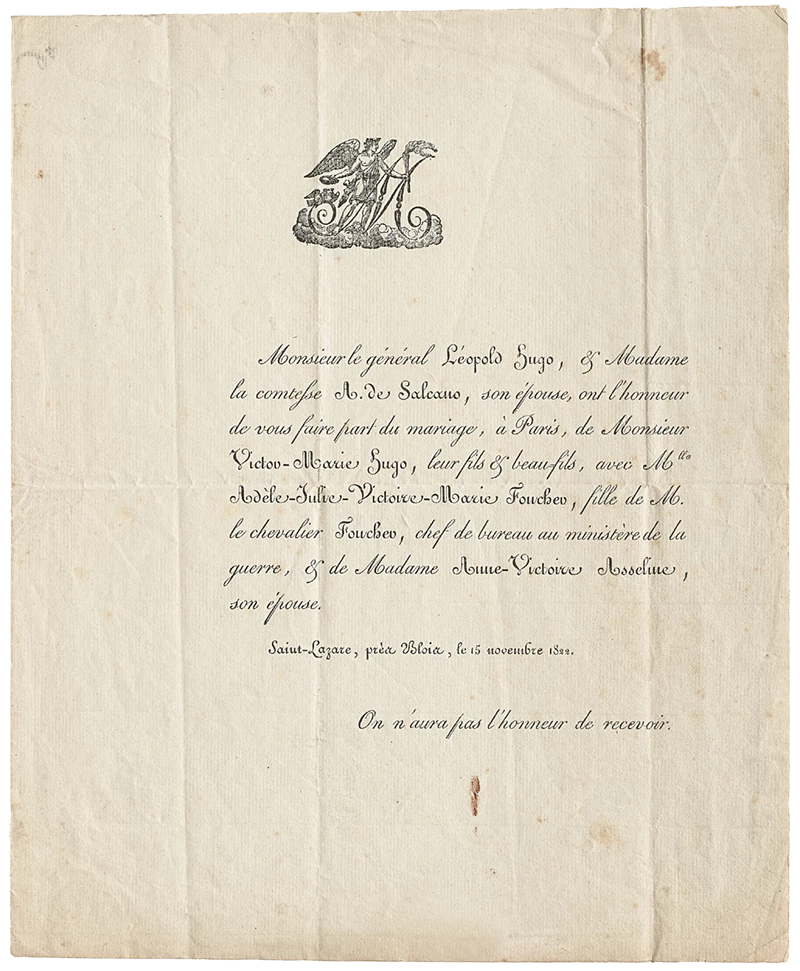 Monsieur le général Léopold Hugo, & Madame
la comtesse A. de Salcano, son épouse, ont l'honneur
de vous faire part du mariage, à Paris, de Monsieur
Victor-Marie Hugo, leur fils & beau-fils, avec Mlle
Adèle-Julie-Victoire-Marie Foucher, fille de M.
le chevalier Foucher, chef de bureau au ministère de la
guerre, & de Madame Anne-Victoire Asseline,
son épouse.
Saint-Lazare, près Blois, le 15 novembre 1822.
On n'aura pas l'honneur de recevoir.